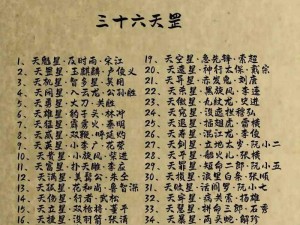 三十六天罡
1、天魁星·及时雨·宋江
2、天罡星·玉麒麟·卢俊义
3、天机星·智多星·吴用
4、天闲星·入云龙·公孙胜
5、天勇星·大刀·关胜
6、天雄星·豹子头·林冲
7、天猛星·霹雳火·秦明
8、天威星·双鞭·呼延灼
9、天英星·小李广·花荣
10、天贵星·小旋风·柴进
11、天富星·扑天雕·李应
12、天满星·美髯公·朱仝
13、天孤星·花和尚·鲁智深
14、天伤星·行者·武松
15、天立星·双枪将·董平
16、天捷星·没羽箭·张清
19、天空星·急先锋·索超
20、天速星·神行太保·戴宗
21、天异星·赤发鬼·刘唐
22、天杀星·黑旋风·李逵
23、天微星·九纹龙·史进
24、天究星·没遮拦·穆弘
25、天退星·插翅虎·雷横
26、天寿星·混江龙·李俊
27、天剑星·立地太岁·阮小二
28、天平星·船火儿·张横
29、天罪星·短命二郎·阮小五
30、天损星·浪里白条·张顺
31、天败星·活阎罗·阮小七
33、天慧星·拼命三郎·石秀
34、天暴星·两头蛇·解珍